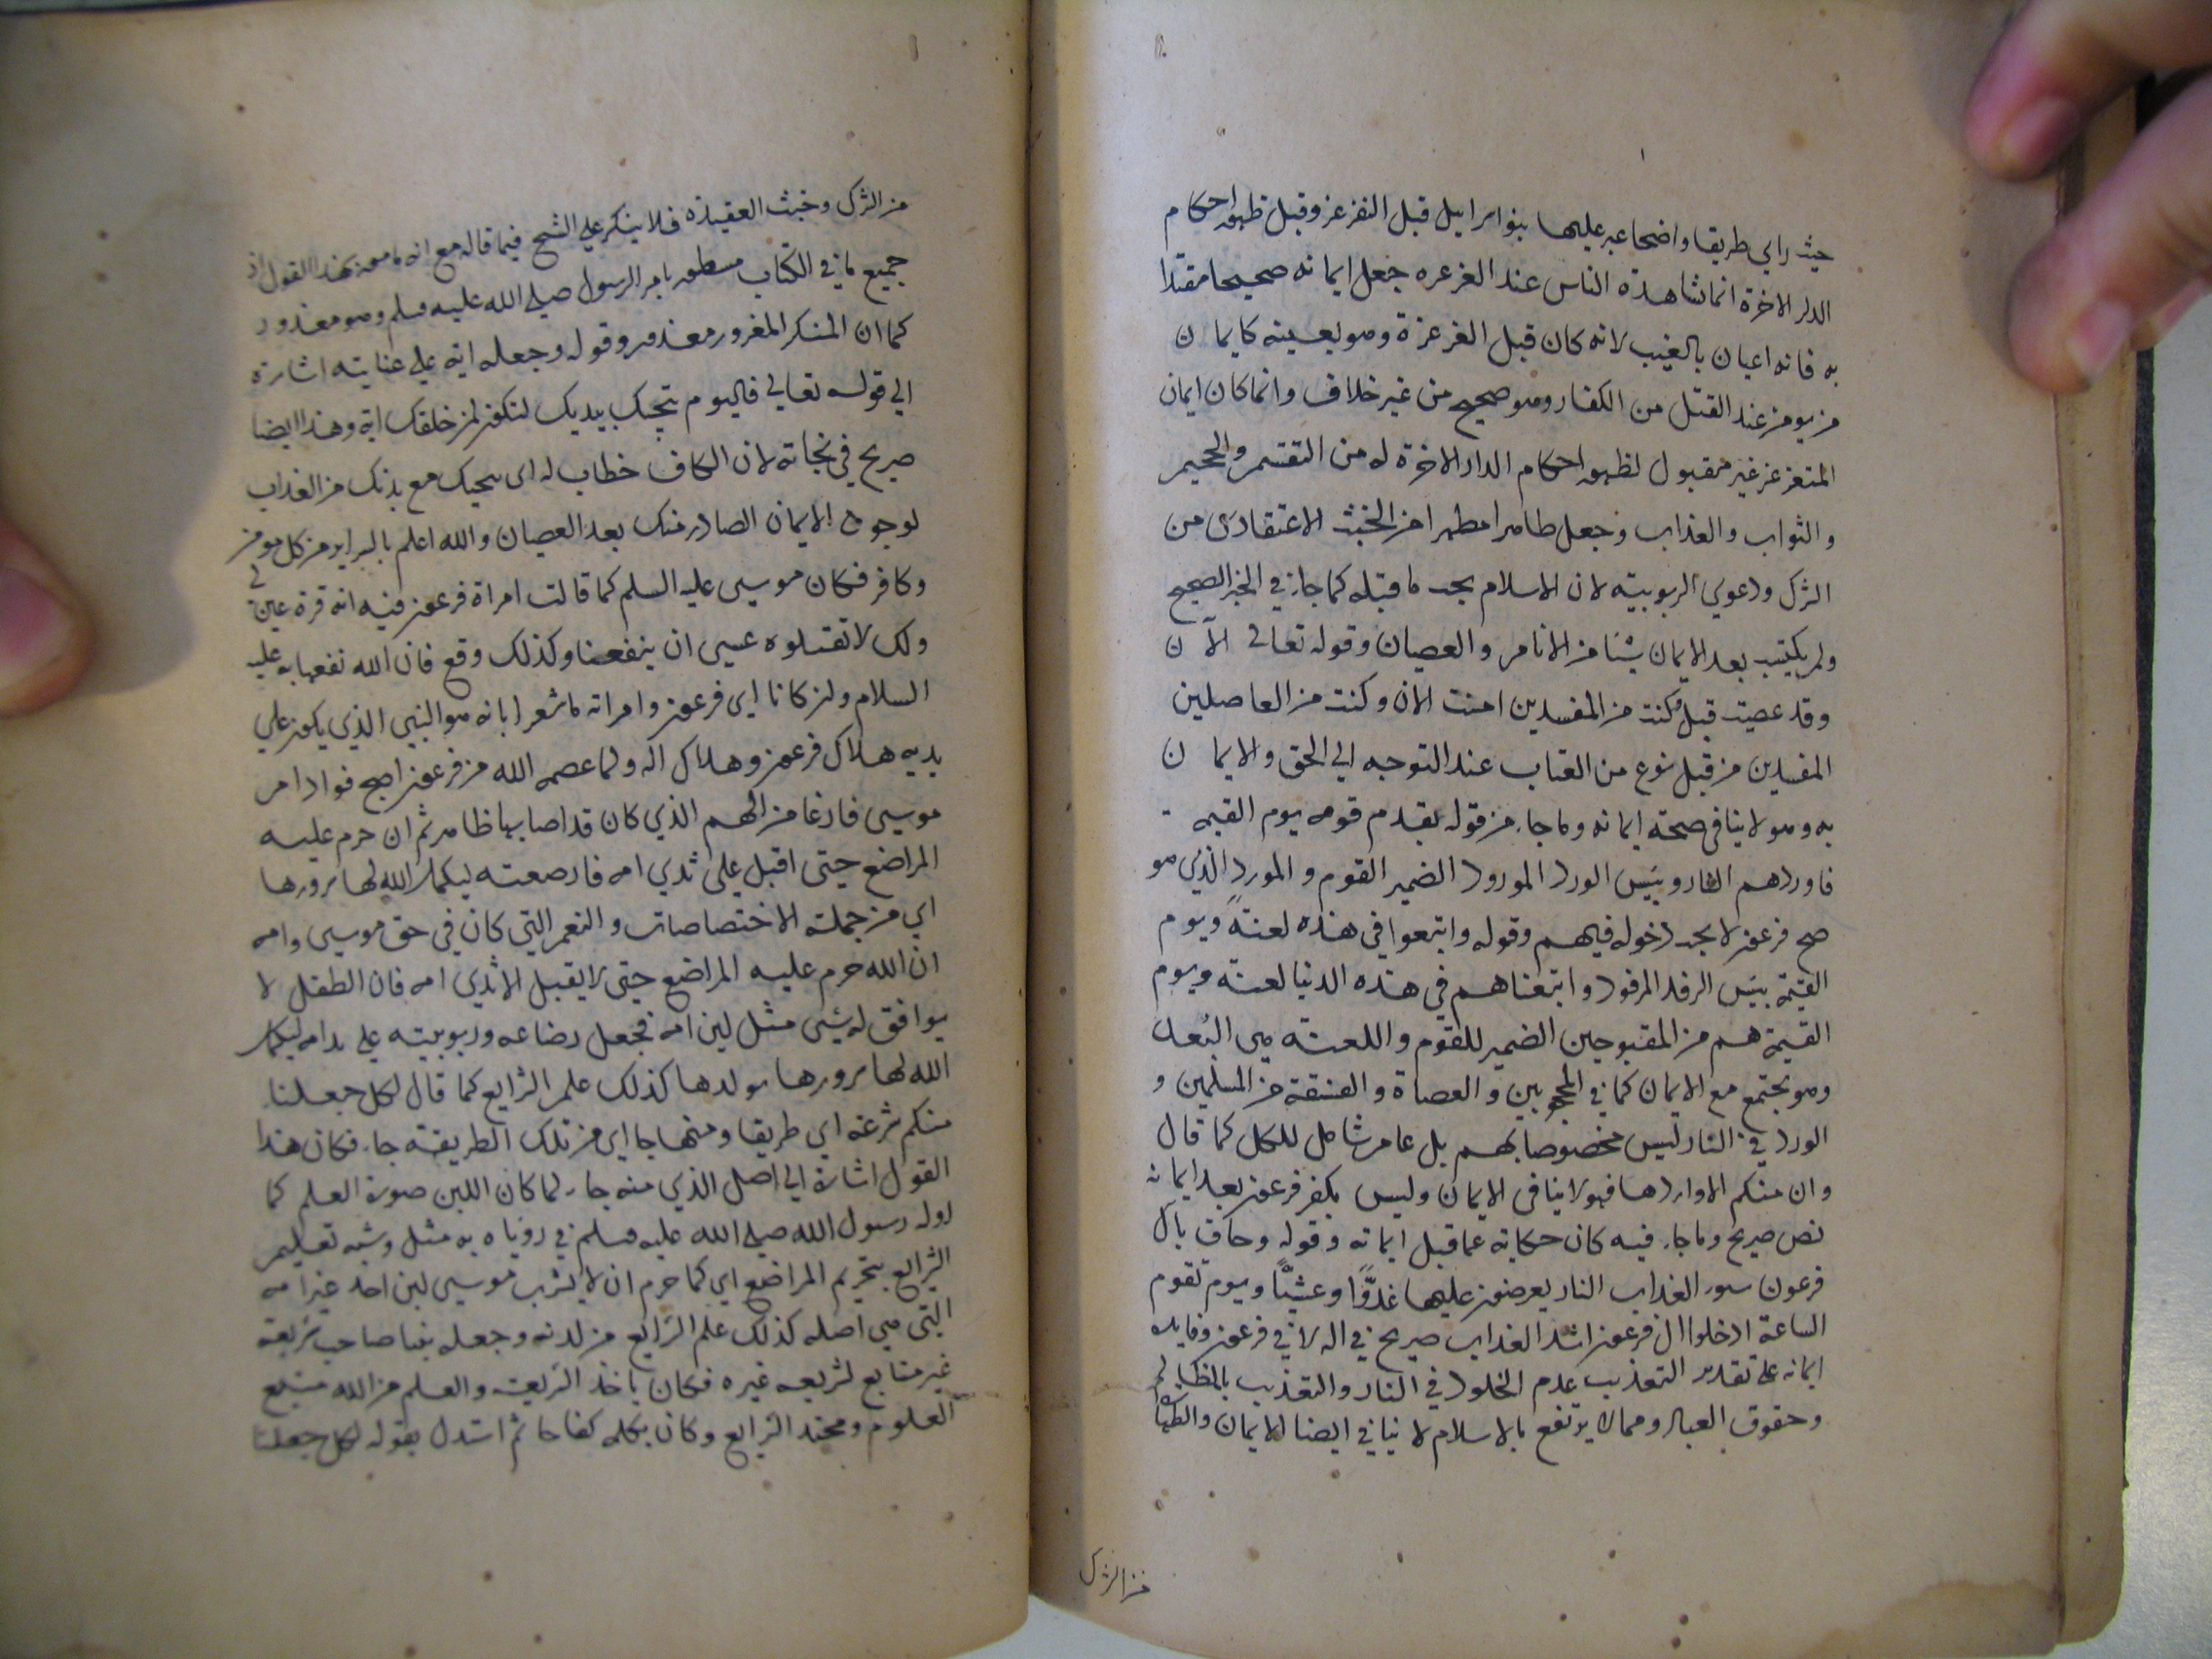 حيث راي طريقا واضحا عبر عليها بنو اسرايل قبل التغرغر وقبل ظهور احكام
الدار الاخرة انما نشاهدة الناس عند الغرغره جعل ايمانه صحيحا معتدا
به فانه اعيان بالغيب لانه كان قبل الغرغرة وهو بعينه كايمان
من يومن عند القتل من الكفار وهو صحيح من غير خلاف وانما كان ايمان
المتغرغر غير مقبول لظهور احكام الدار الاخرة له من التقسم والجحيم
والثواب والعذاب وجعل طاهرا مطهرا من الخبث الاعتقادى من
الشرك ودعوي الربوبيته لان الاسلام يجب ما قبله كما جا في الخبر الصحيح
ولم يكتب بعد الايمان شيئا من الاثام والعصيان وقوله تعالى الآن
وقد عصيت قبل وكنت من المفسدين امنت الان وكنت من العاصلين
المفسدين من قبل نوع من العتاب عند التوجه الي الحق والايمان
به وهو لا ينافي صحة ايمانه وما جا من قوله يقدم قومه يوم القيمة
فاوردهم النار وبئس الورد المورود الضمير القوم والمورد الذي هو
صح فرعون لا يجب دخوله فيهم وقوله واتبعوا في هذه لعنةً ويوم
القيمة بيئس الرفد المرفود واتبعناهم في هذه الدنيا لعنة ويوم
القيمة هم من المقبوحين الضمير للقوم واللعنة هي البُعد
وهو يجتمع مع الايمان كما في المحجوبين والعصاة والفسقة من المسلمين و
الورد في النار ليس مخصوصا بهم بل عام شامل للكل كما قال
وان منكم الا واردها فهو لا ينافي الايمان وليس بكفر فرعون بعد ايمانه
نص صريح وما جا فيه كان حكاية عما قبل ايمانه وقوله وحاق بآل
فرعون سوء العذاب النار يعرضون عليها غدوًّا وعشيًّا ويوم تقوم
الساعة ادخلوا ال فرعون اشد العذاب صريح في اله لا في فرعون وفايده
ايمانه على تقدير التعذيب عدم الخلود في النار والتعذيب بالمظالم
وحقوق العباد ومما لا يرتفع بالاسلام لا ينافي ايضا الايمان والطهارة
من الشرك
من الشرك وخبث العقيدة فلا ينكر علي الشيخ فيما قاله مع انه مامور بهذا القول اذ
جميع ما في الكتاب مسطور بامر الرسول صلي الله عليه وسلم وهو معذور
كما ان المنكر المغرور معذور وقوله وجعله اية علي عنايته اشارة
الي قوله تعالي فاليوم ننجيك ببدنك لتكون لمن خلفك اية وهذا ايضا
صريح في نجاته لان الكاف خطاب له اى ننجيك مع بدنك من العذاب
لوجود الايمان الصادر منك بعد العصيان والله اعلم بالسراير من كل مومن
وكافر فكان موسى عليه السلم كما قالت امراة فرعون فيه انه قرة عين لي
ولك لا تقتلوه عسى ان ينفعنا وكذلك وقع فان الله نفعها به عليه
السلام ولن كانا اي فرعون وامراته ما شعرا بانه هو النبي الذي يكون علي
يديه هلاك فرعون وهلاك اله ولما عصمه الله من فرعون اصبح فواد ام
موسى فارغا من الهم الذي كان قد اصابها ظاهر ثم ان حرم عليه
المراضع حتى اقبل على ثدي امه فارضعته ليكمل الله لها سرورها
اي من جملة الاختصاصات والنعم التي كان في حق موسى وامه
ان الله حرم عليه المراضع حتى لا يقبل الا ثدي امه فان الطفل لا
يوافق له شيئ مثل لبن امه فجعل رضاعه وربوبيته علي يد امه ليكمل
الله لها سرورها بولدها كذلك علم الشرايع كما قال لكل جعلنا
منكم شرعة اي طريقا ومنهاجا اي من تلك الطريقة جا فكان هذا
القول اشارة الي اصل الذي منه جا ولما كان اللبن صورة العلم كما
اوله رسول الله صلي الله عليه وسلم في روياه به مثل وشبه تعليم
الشرايع بتحريم المراضع اي كما حرم ان لا يشرب موسى لبن احد غير امه
التي هي اصله كذلك علم الشرايع من لدنه وجعله نبيا صاحب شريعة
غير متابع لشريعه غيره فكان ياخذ الشريعة والعلم من الله منبع
العلوم ومحتد الشرايع وكان بكلمه كفاحا ثم استدل بقوله لكل جعلنا